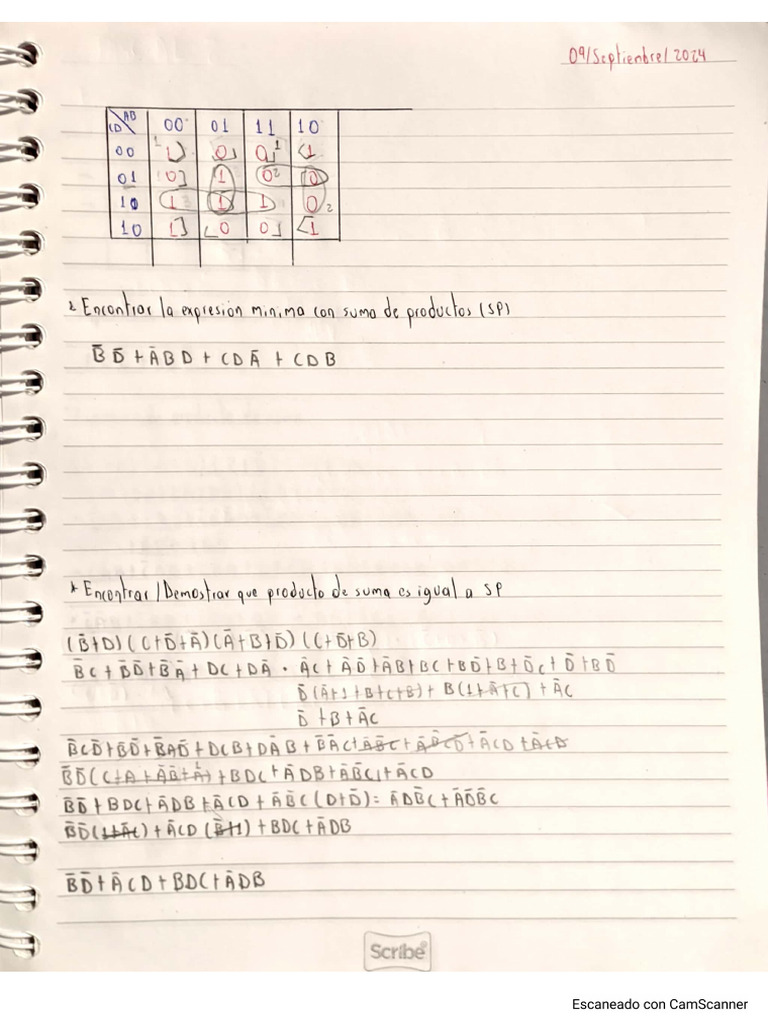 09/Septiembre/2024
AB
CD 00 01 11 10
00 1 0 0 1
01 0 1 0 0
10 1 1 1 0
10 1 0 0 1
Encontrar la expresion minima con suma de productos (SP)
B̄ D̄ + Ā B D + C D Ā + C D B
* Encontrar / Demostrar que producto de suma es igual a SP
(B̄+D)(C+D̄+Ā)(Ā+B+D̄)(C+D̄+B)
B̄C+B̄D̄+B̄Ā+DC+DĀ · ĀC+ĀD̄+ĀB+BC+BD̄+B+D̄C+D̄+BD̄
D̄(Ā+1+B+C+B)+B(1+Ā+C)+ĀC
D̄+B+ĀC
B̄CD̄+B̄D̄+B̄ĀD̄+DCB+DĀB+B̄ĀC+ĀB̄C+ĀB̄CD̄+ĀCD+ĀCD
B̄D̄(C+A+ĀB+Ā)+BDC+ĀDB+ĀB̄C+ĀCD
B̄D̄+BDC+ĀDB+ĀCD+ĀB̄C(D+D̄)=ĀDB̄C+ĀD̄B̄C
B̄D̄(1+ĀC)+ĀCD(B̄+1)+BDC+ĀDB
B̄D̄+ĀCD+BDC+ĀDB
Scribe
Escaneado con CamScanner